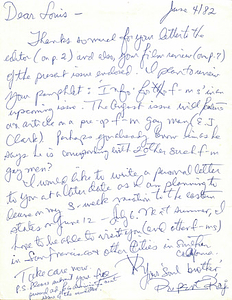 Dear Louis - June 4/82
Thanks so much for your letter to the
editor (on p. 2) and also your film review (on p. 7)
of the present issue enclosed. I plan to review
your pamphlet: Info for the f-m's in an
upcoming issue. The August issue will feature
an article on a pre-op f-m gay man (E.J.
Clark) Perhaps you already know him since he
says he is corresponding with 2 other such f-m
gay men?
I would like to write a personal letter
to you at a later date as I am planning to
leave on my 3 week vacation to the eastern
states on June 12 - July 6. Next summer, I
hope to be able to visit you (and other f-ms)
in San Francisco and other cities in Southern
California.
Take care now
Your Soul brother
Rupert Raj
P.S. Please